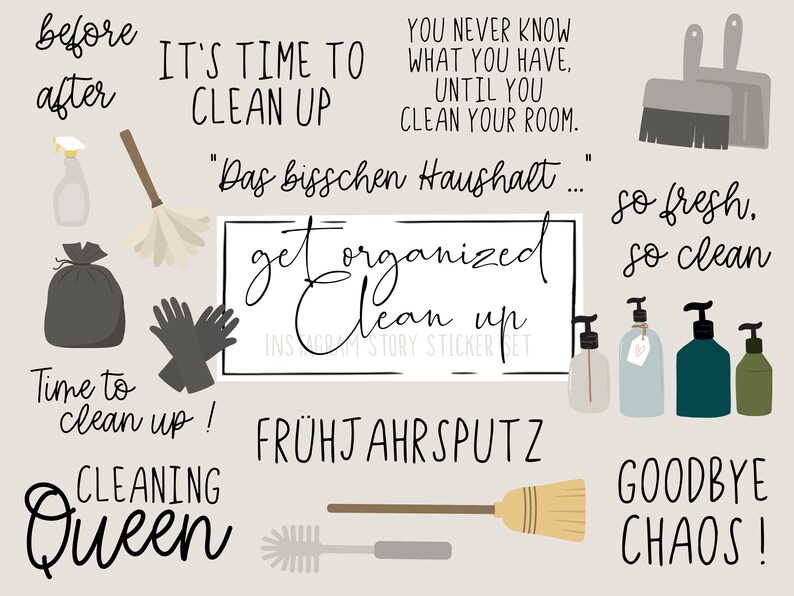 before
after
IT'S TIME TO
CLEAN UP
YOU NEVER KNOW
WHAT YOU HAVE,
UNTIL YOU
CLEAN YOUR ROOM.
"Das bisschen Haushalt ..."
so fresh,
so clean
get organized
Clean up
INSTAGRAM STORY STICKER SET
Time to
clean up !
FRÜHJAHRSPUTZ
CLEANING
Queen
GOODBYE
CHAOS !